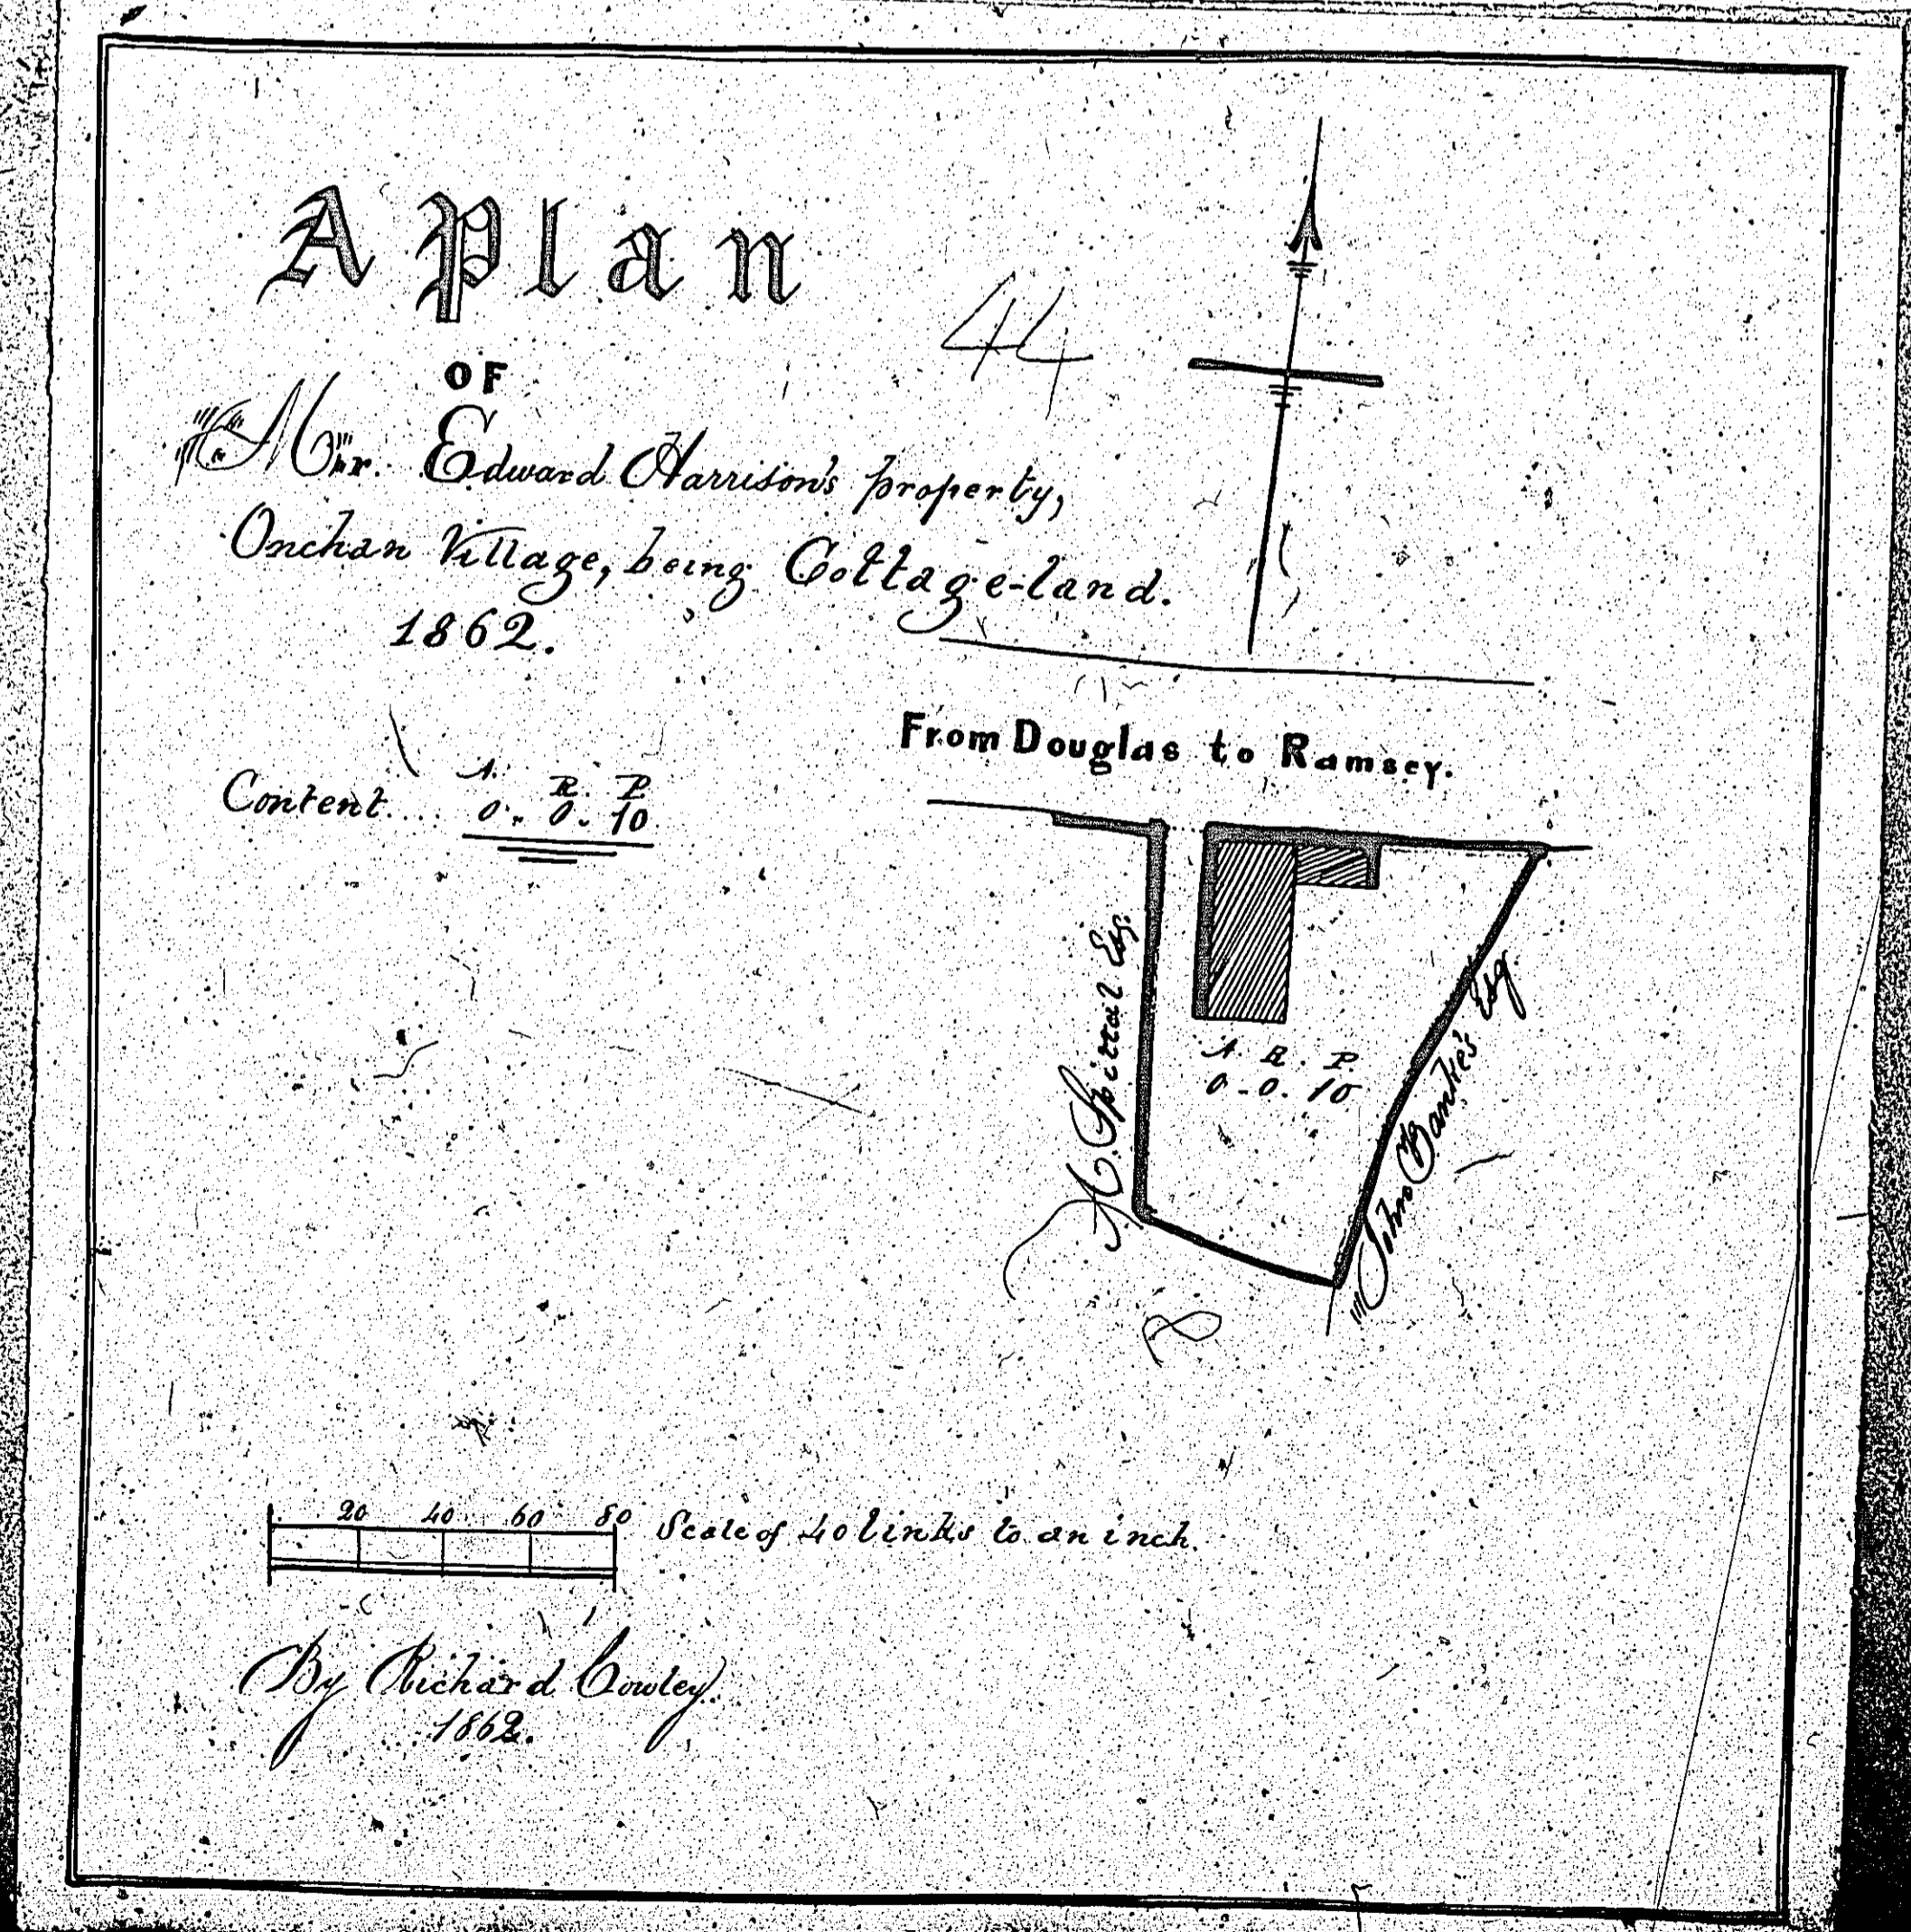 A Plan
44
OF
Mr. Edward Harrison's property,
Onchan Village, being Cottage-land.
1862.
From Douglas to Ramsey.
A. R. P.
Content.... 0 . 0 . 10
A. R. P.
0 - 0 . 10
John Banke's Esq.
20 40 60 80 Scale of 40 links to an inch.
By Richard Cowley.
1862.